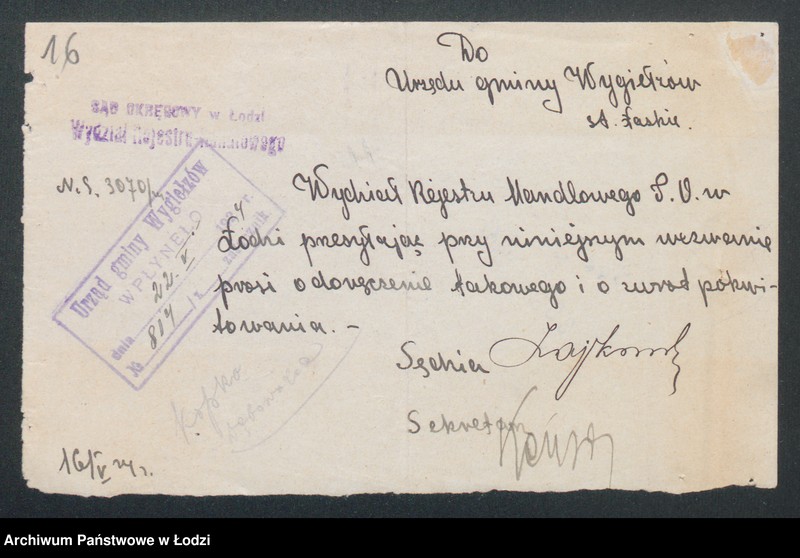 16
Do
Urzędu gminy Wygiełzów
st. Łaskie.
SĄD OKRĘGOWY w Łodzi
Wydział Rejestru Handlowego
N.S. 3070/24
Urząd gminy Wygiełzów
WPŁYNĘŁO
dnia 22.V 1924 r.
№ 817 / z załącznik
Wydział Rejestru Handlowego S. O. w
Łodzi przesyłając przy niniejszym wezwanie
prosi o doręczenie takowego i o zwrot pokwi-
towania. –
Sędzia
Sekretarz
Kopko
16/V 24 r.
Archiwum Państwowe w Łodzi